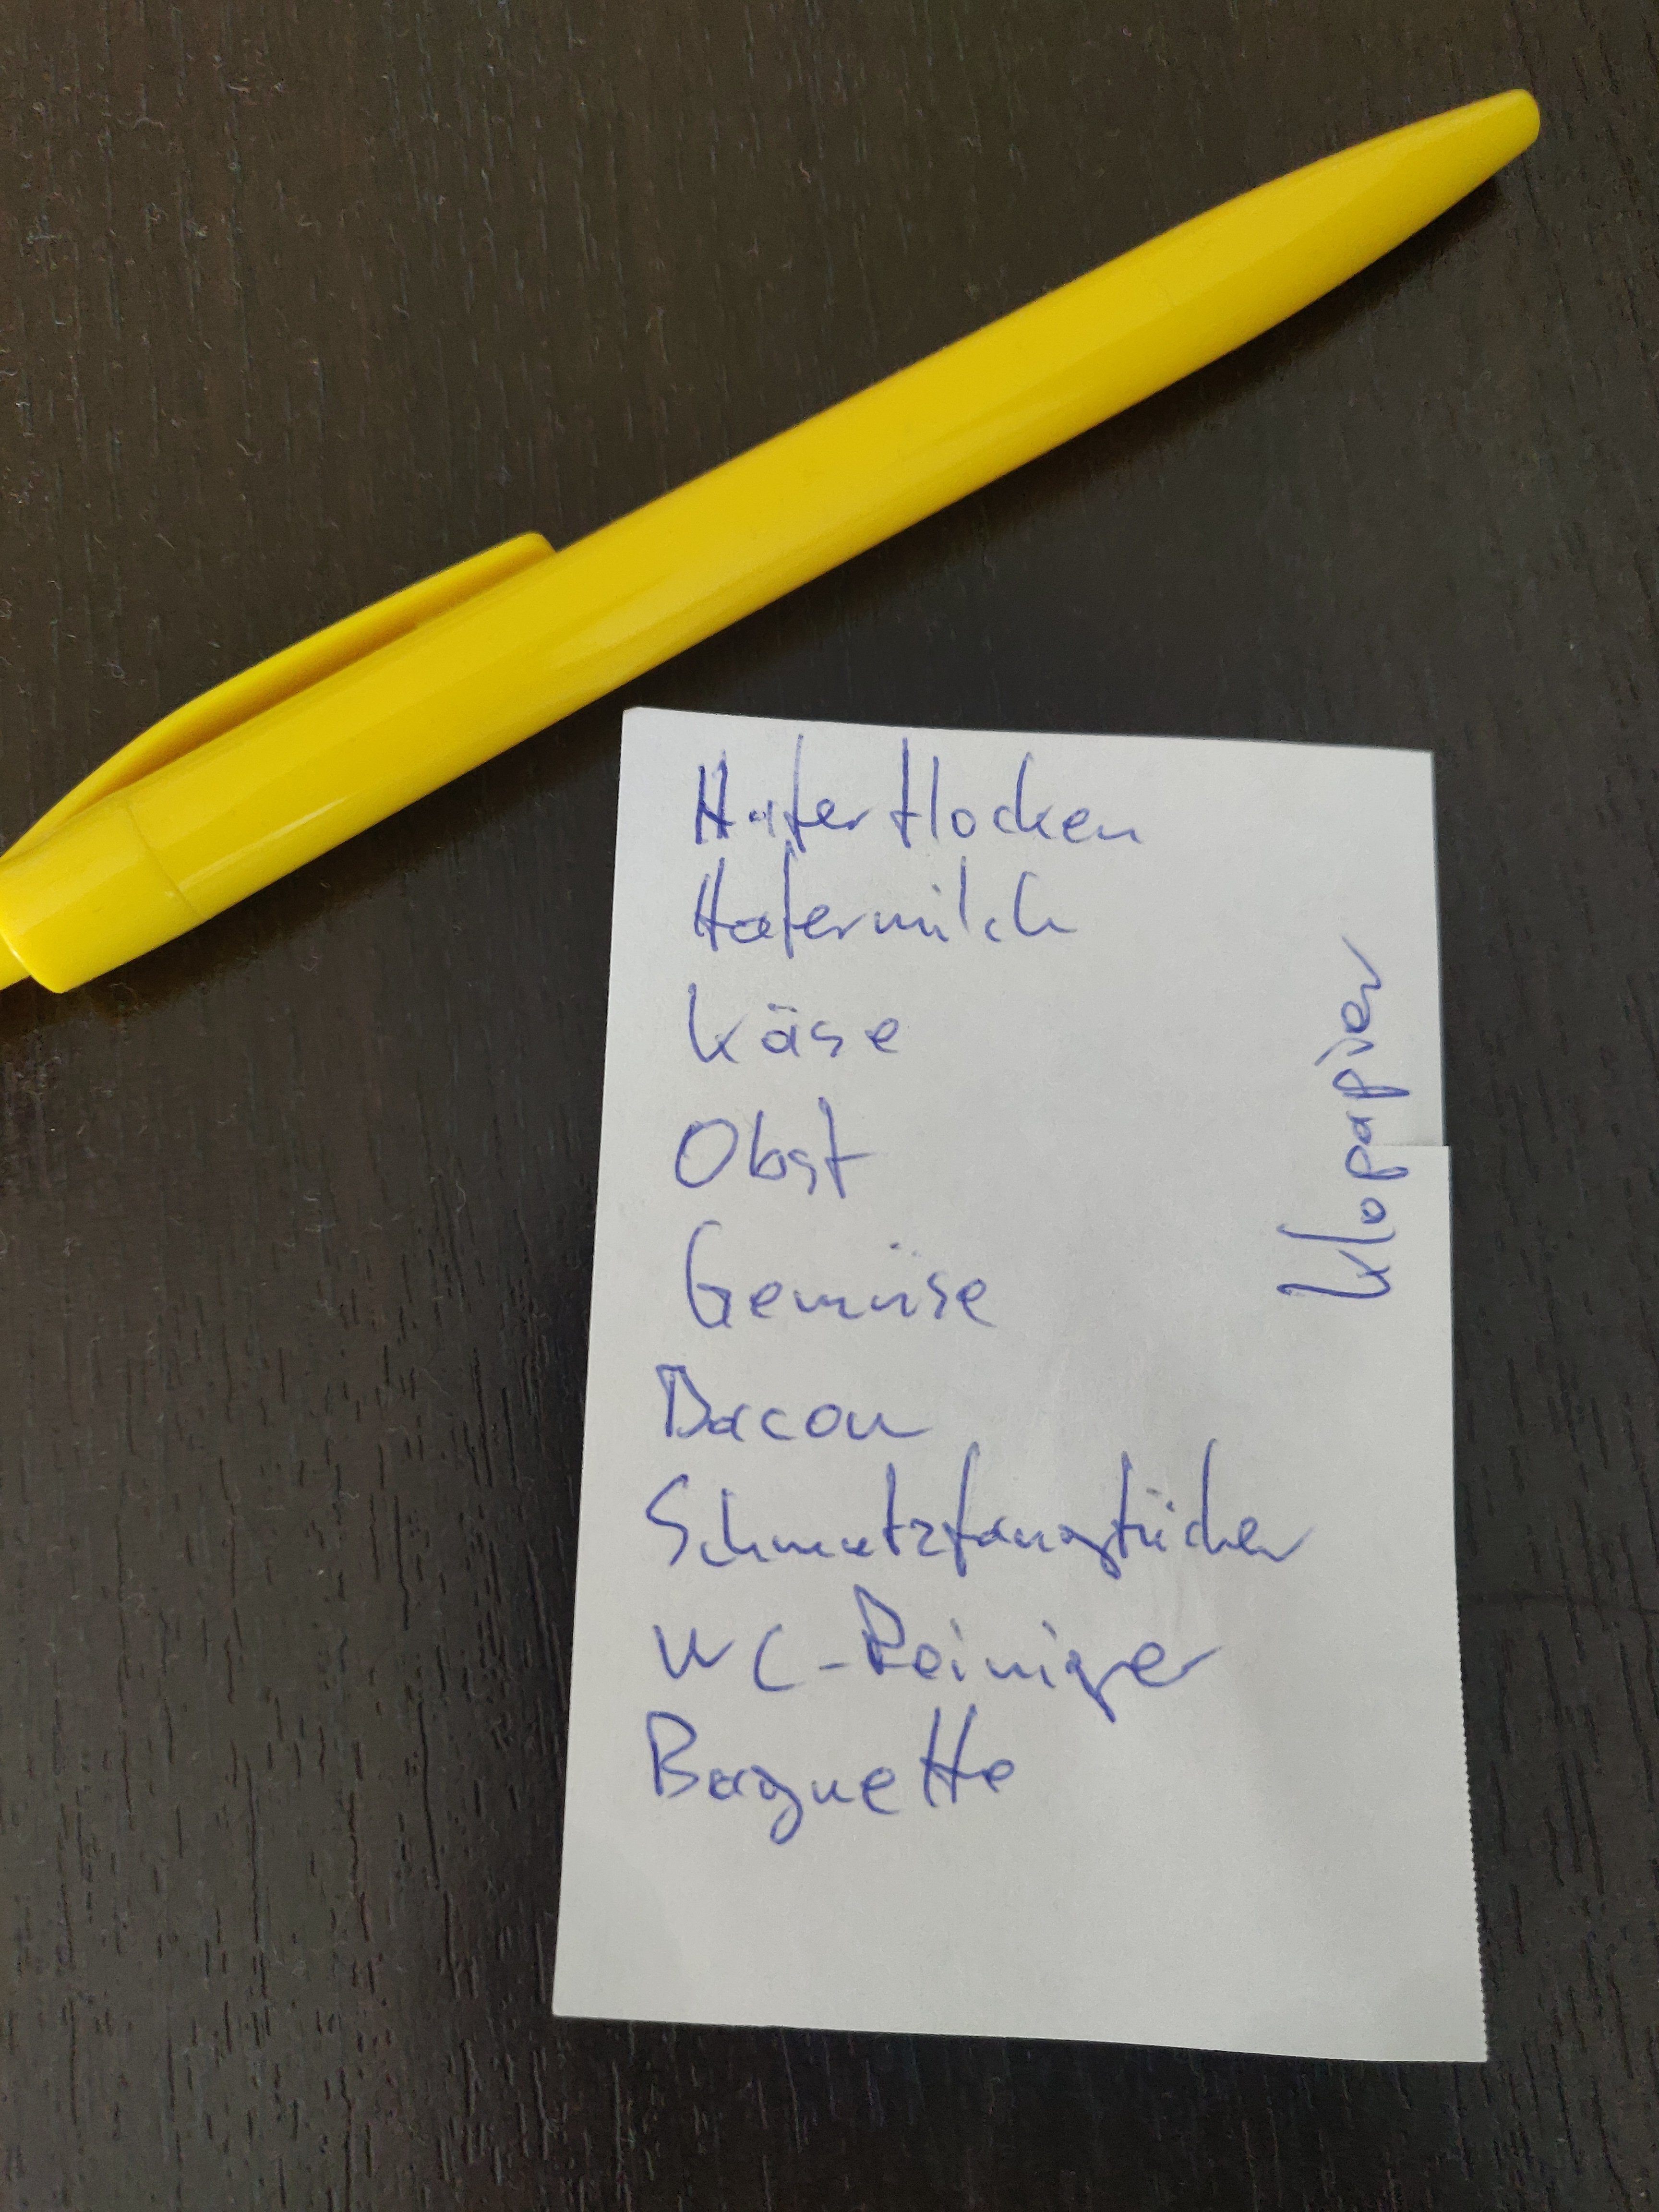 Haferflocken
Hafermilch
Käse
Obst
Gemüse
Bacon
Schmutzfangtücher
WC-Reiniger
Baguette
Klopapier